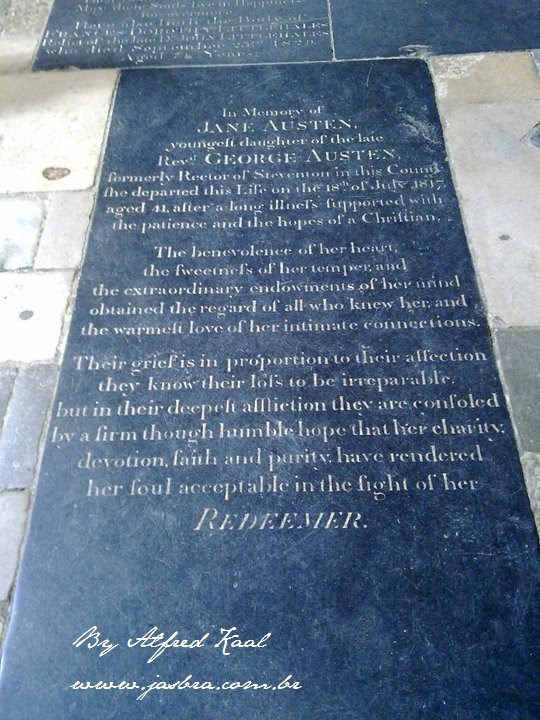 their Souls live in Happiness
for evermore.
the Body of
FRANCES DOROTHY LITTLEHALES
LITTLEHALES
died September 1829
Aged
In Memory of
JANE AUSTEN,
youngeſt daughter of the late
Revd. GEORGE AUSTEN,
formerly Rector of Steventon in this County
ſhe departed this Life on the 18th of July 1817,
aged 41, after a long illneſs ſupported with
the patience and the hopes of a Chriſtian.
The benevolence of her heart,
the ſweetneſs of her temper, and
the extraordinary endowments of her mind
obtained the regard of all who knew her, and
the warmeſt love of her intimate connections.
Their grief is in proportion to their affection
they know their loſs to be irreparable,
but in their deepeſt affliction they are conſoled
by a firm though humble hope that her charity,
devotion, faith and purity, have rendered
her ſoul acceptable in the ſight of her
REDEEMER.
By Alfred Kaal
www.jasbra.com.br